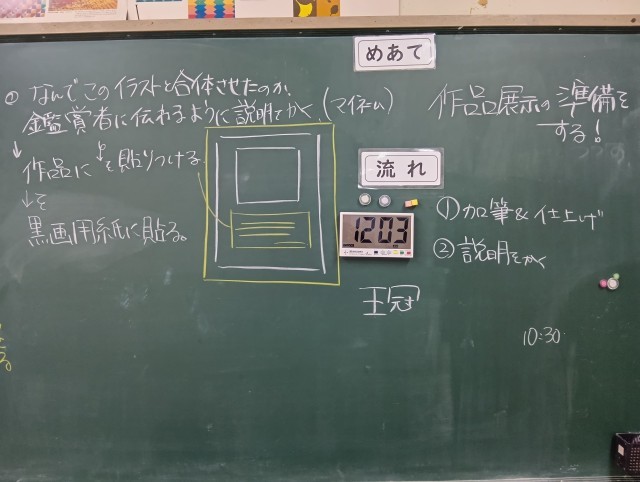 めあて
作品展示の準備を
する！
流れ
①加筆&仕上げ
②説明をかく
10:30
1203
王冠
②なんでこのイラストと合体させたのか、
鑑賞者に伝わるように説明をかく。(マイネーム)
↓
作品に を貼りつける
↓を
黒画用紙に貼る。